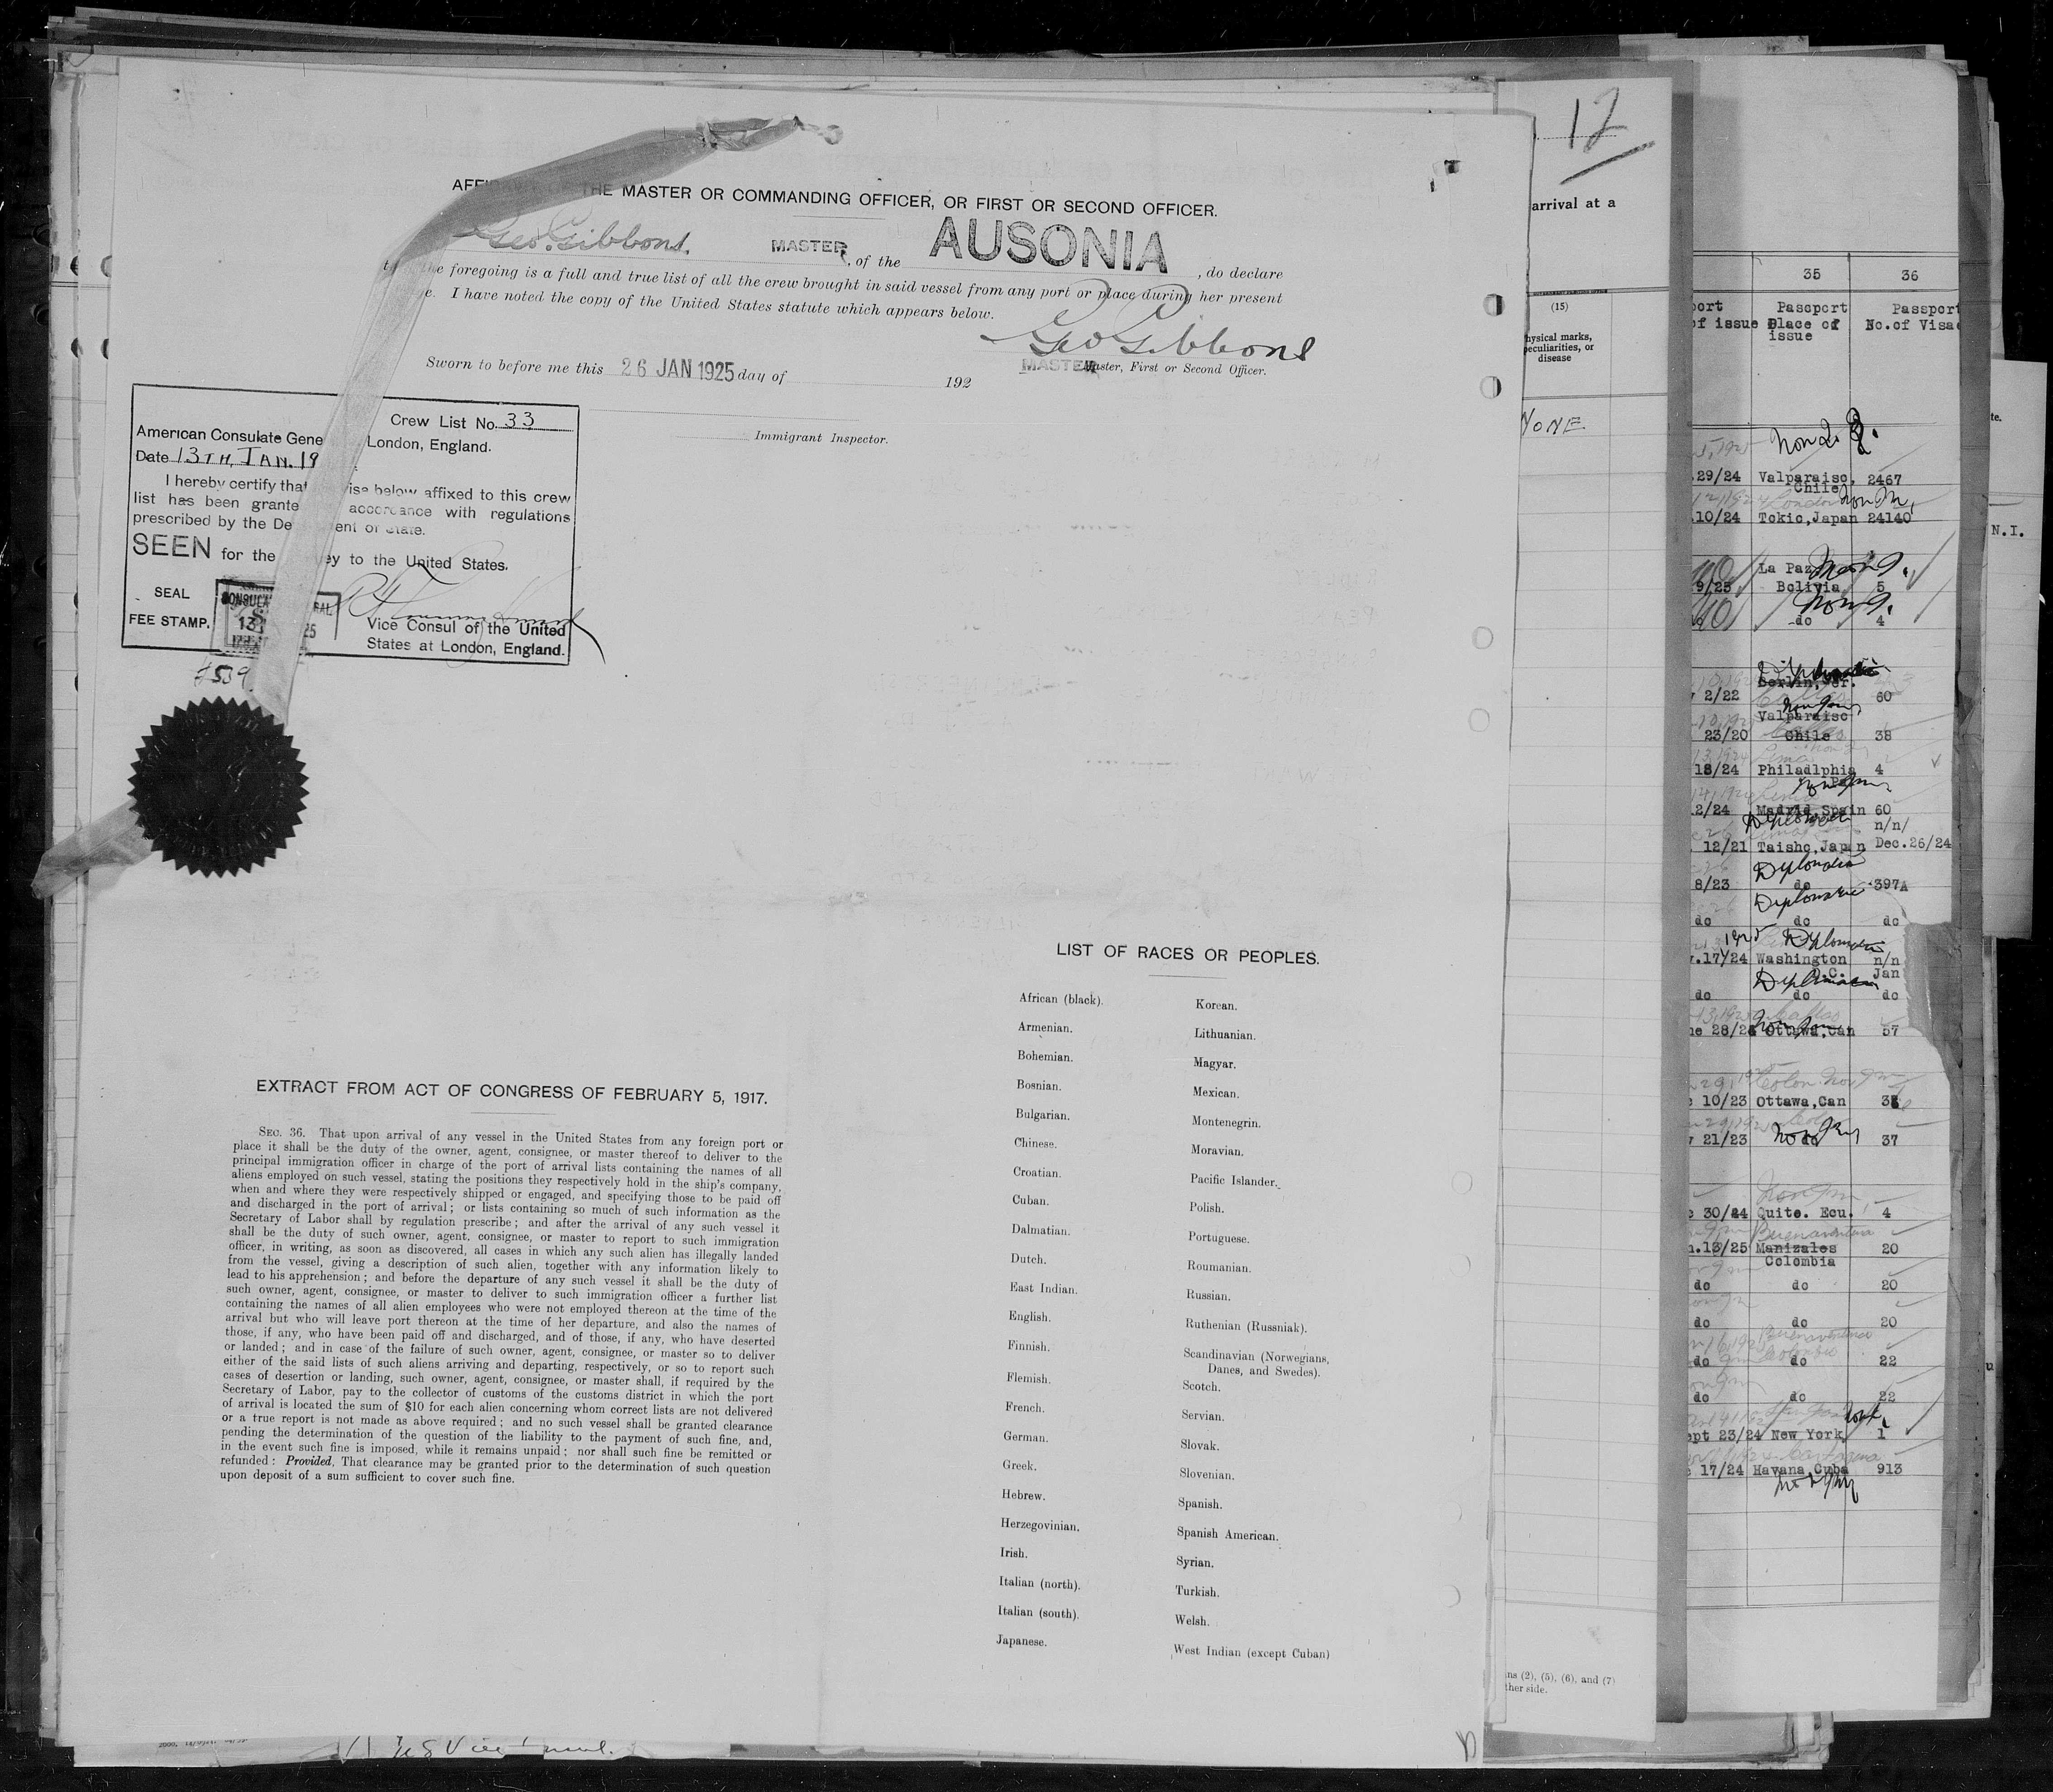 AFFIDAVIT OF THE MASTER OR COMMANDING OFFICER, OR FIRST OR SECOND OFFICER.
Geo. Gibbons, MASTER, of the AUSONIA, do declare
the foregoing is a full and true list of all the crew brought in said vessel from any port or place during her present
I have noted the copy of the United States statute which appears below.
Geo Gibbons
MASTER Master, First or Second Officer.
Sworn to before me this 26 JAN 1925 day of 192
Immigrant Inspector.
Crew List No. 33
American Consulate Gene London, England.
Date 13TH, JAN. 19
I hereby certify that vise below affixed to this crew
list has been grante accordance with regulations
prescribed by the De ent of State.
SEEN for the ey to the United States.
SEAL
FEE STAMP.
CONSULA
13
25
Vice Consul of the United
States at London, England.
LIST OF RACES OR PEOPLES.
African (black).
Armenian.
Bohemian.
Bosnian.
Bulgarian.
Chinese.
Croatian.
Cuban.
Dalmatian.
Dutch.
East Indian.
English.
Finnish.
Flemish.
French.
German.
Greek.
Hebrew.
Herzegovinian.
Irish.
Italian (north).
Italian (south).
Japanese.
Korean.
Lithuanian.
Magyar.
Mexican.
Montenegrin.
Moravian.
Pacific Islander.
Polish.
Portuguese.
Roumanian.
Russian.
Ruthenian (Russniak).
Scandinavian (Norwegians,
Danes, and Swedes).
Scotch.
Servian.
Slovak.
Slovenian.
Spanish.
Spanish American.
Syrian.
Turkish.
Welsh.
West Indian (except Cuban)
EXTRACT FROM ACT OF CONGRESS OF FEBRUARY 5, 1917.
SEC. 36. That upon arrival of any vessel in the United States from any foreign port or
place it shall be the duty of the owner, agent, consignee, or master thereof to deliver to the
principal immigration officer in charge of the port of arrival lists containing the names of all
aliens employed on such vessel, stating the positions they respectively hold in the ship's company,
when and where they were respectively shipped or engaged, and specifying those to be paid off
and discharged in the port of arrival; or lists containing so much of such information as the
Secretary of Labor shall by regulation prescribe; and after the arrival of any such vessel it
shall be the duty of such owner, agent, consignee, or master to report to such immigration
officer, in writing, as soon as discovered, all cases in which any such alien has illegally landed
from the vessel, giving a description of such alien, together with any information likely to
lead to his apprehension; and before the departure of any such vessel it shall be the duty of
such owner, agent, consignee, or master to deliver to such immigration officer a further list
containing the names of all alien employees who were not employed thereon at the time of the
arrival but who will leave port thereon at the time of her departure, and also the names of
those, if any, who have been paid off and discharged, and of those, if any, who have deserted
or landed; and in case of the failure of such owner, agent, consignee, or master so to deliver
either of the said lists of such aliens arriving and departing, respectively, or so to report such
cases of desertion or landing, such owner, agent, consignee, or master shall, if required by the
Secretary of Labor, pay to the collector of customs of the customs district in which the port
of arrival is located the sum of $10 for each alien concerning whom correct lists are not delivered
or a true report is not made as above required; and no such vessel shall be granted clearance
pending the determination of the question of the liability to the payment of such fine, and,
in the event such fine is imposed, while it remains unpaid; nor shall such fine be remitted or
refunded: Provided, That clearance may be granted prior to the determination of such question
upon deposit of a sum sufficient to cover such fine.
12
arrival at a
(15)
hysical marks,
peculiarities, or
disease
NONE
ns (2), (5), (6), and (7)
ther side.
35 36
port Passport Passport
of issue Place of No. of Visa
issue
29/24 Valparaiso, 2467
Chile
10/24 Tokio, Japan 24140
La Paz
9/25 Bolivia 5
do 4
Berlin, Ger.
2/22 60
Valparaiso
23/20 Chile 38
18/24 Philadlphia 4
2/24 Madrid, Spain 60
n/n/
12/21 Taisho, Japan Dec. 26/24
Diplomatic
8/23 do 397A
Diplomatic
do do do
1925 Diplomatic
.17/24 Washington n/n
D.C. Jan
do do do
ne 28/24 Ottawa, Can 57
10/23 Ottawa, Can
21/23 do 37
30/24 Quito. Ecu. 4
Buenaventura
.13/25 Manizales 20
Colombia
do do 20
do do 20
Buenaventura
do do 22
do do 22
ept 23/24 New York 1
Cartagena
17/24 Havana, Cuba 913
te.
N.I.